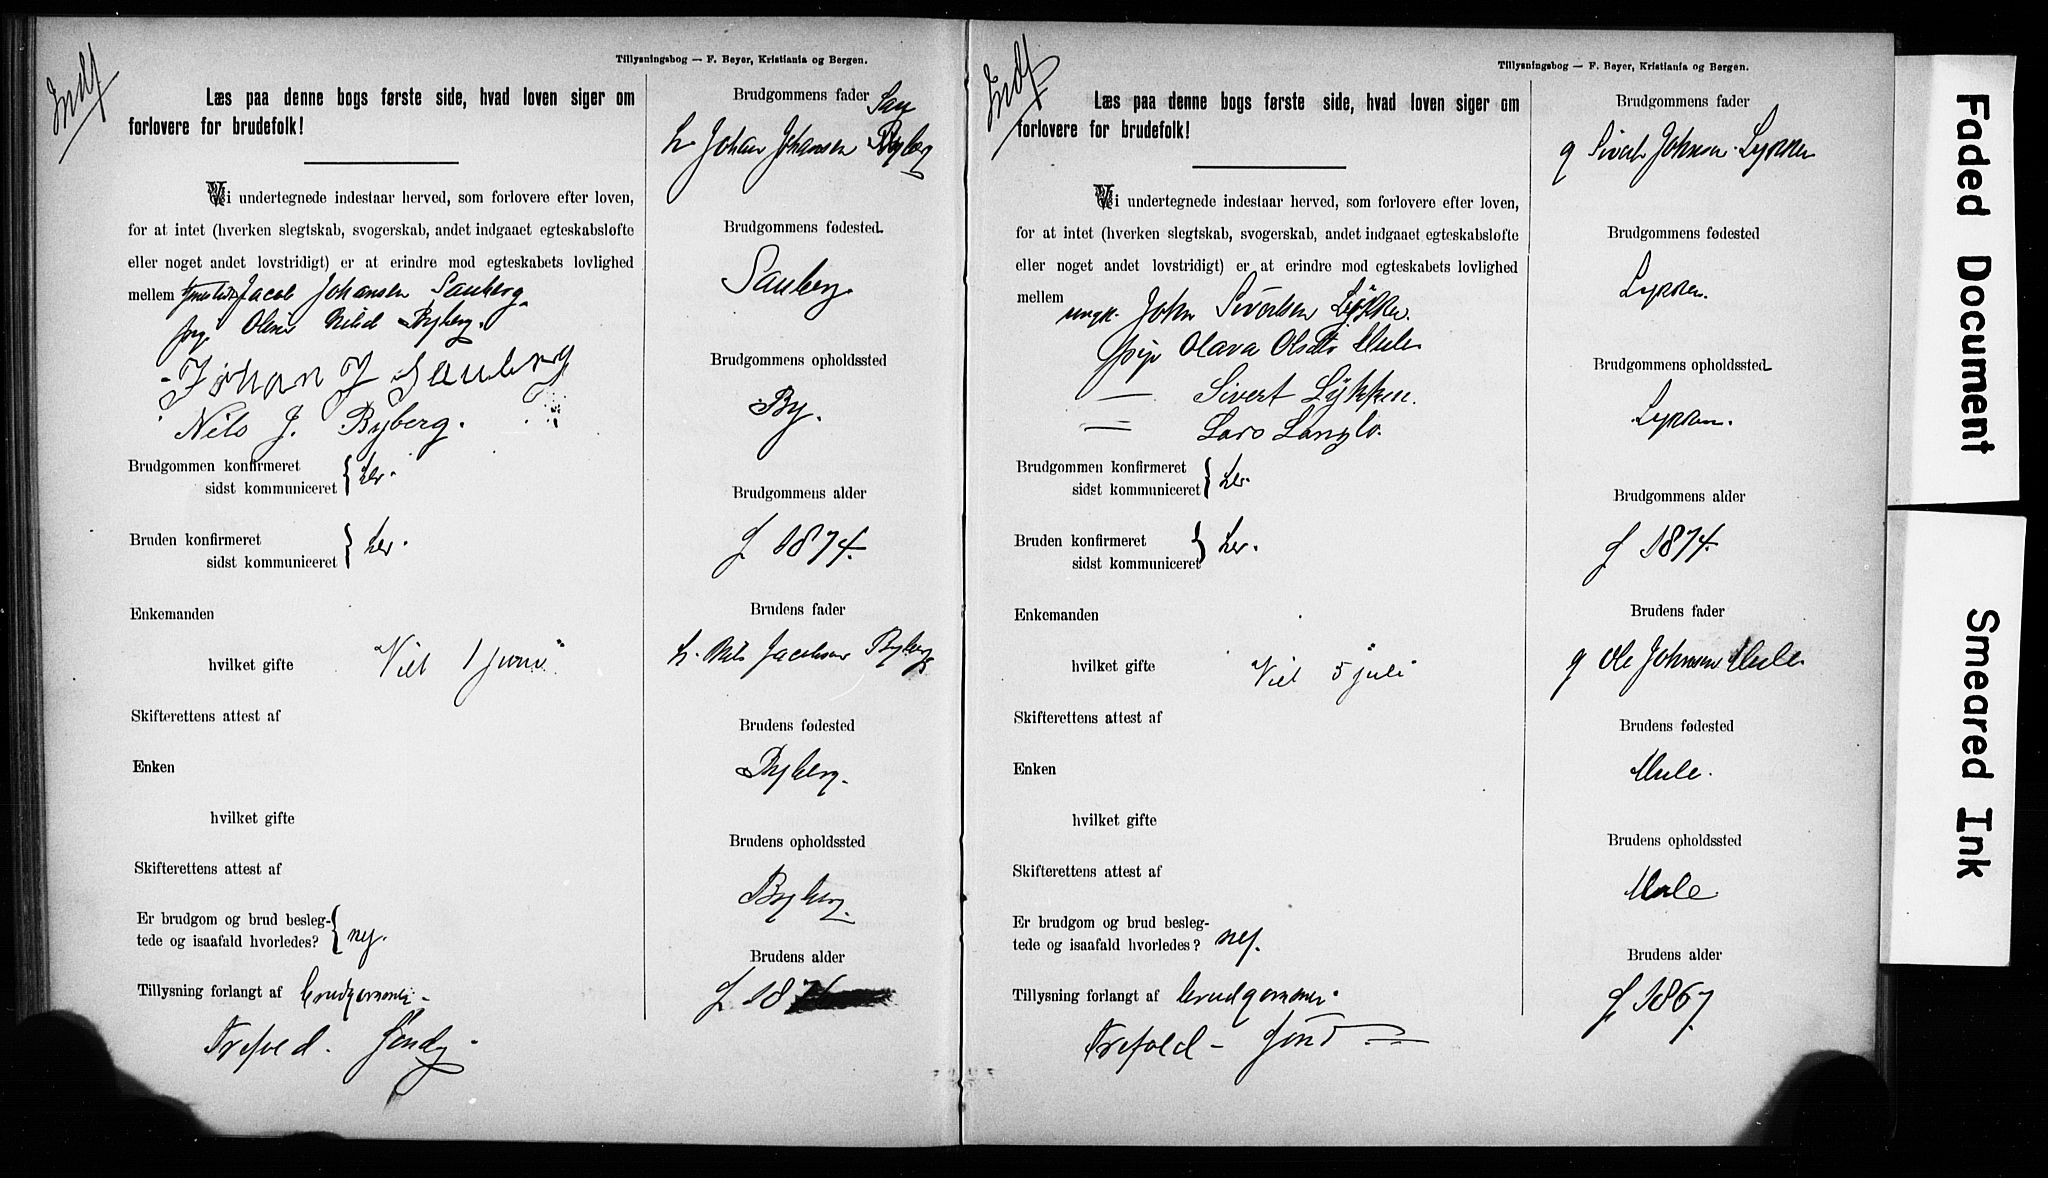 Indf
Tillysningsbog — F. Beyer, Kristiania og Bergen.
Læs paa denne bogs første side, hvad loven siger om
forlovere for brudefolk!
Vi undertegnede indestaar herved, som forlovere efter loven,
for at intet (hverken slegtskab, svogerskab, andet indgaaet egteskabsløfte
eller noget andet lovstridigt) er at erindre mod egteskabets lovlighed
mellem Jacob Johansen Sauberg
Oline Byberg.
Johan J Sauberg
Nils J. Byberg.
Brudgommen konfirmeret
sidst kommuniceret } her.
Bruden konfirmeret
sidst kommuniceret } her.
Enkemanden
hvilket gifte
Viet 1 juni
Skifterettens attest af
Enken
hvilket gifte
Skifterettens attest af
Er brudgom og brud besleg-
tede og isaafald hvorledes? { nej.
Tillysning forlangt af brudgommen
Trefold.
Brudgommens fader
Sau
Johan Johansen Byberg
Brudgommens fødested
Sauberg.
Brudgommens opholdssted
By.
Brudgommens alder
f 1874.
Brudens fader
Nils Jacobsen Byberg
Brudens fødested
Byberg.
Brudens opholdssted
Byberg.
Brudens alder
f 187
Indf
Tillysningsbog — F. Beyer, Kristiania og Bergen.
Læs paa denne bogs første side, hvad loven siger om
forlovere for brudefolk!
Vi undertegnede indestaar herved, som forlovere efter loven,
for at intet (hverken slegtskab, svogerskab, andet indgaaet egteskabsløfte
eller noget andet lovstridigt) er at erindre mod egteskabets lovlighed
mellem
ungk. John Sivertsen Lykken.
pige Olava Olsdtr Mule
— Sivert Lykken.
— Lars Langlo.
Brudgommen konfirmeret
sidst kommuniceret } her.
Bruden konfirmeret
sidst kommuniceret } her.
Enkemanden
hvilket gifte
Viet 5 juli
Skifterettens attest af
Enken
hvilket gifte
Skifterettens attest af
Er brudgom og brud besleg-
tede og isaafald hvorledes? nej.
Tillysning forlangt af brudgommen
Trefold —
Brudgommens fader
g Sivert Johnsen Lykken
Brudgommens fødested
Lykken.
Brudgommens opholdssted
Lykken.
Brudgommens alder
f 1874.
Brudens fader
g Ole Johnsen Mule
Brudens fødested
Mule.
Brudens opholdssted
Mule
Brudens alder
f 1867.
Faded Document
Smeared Ink